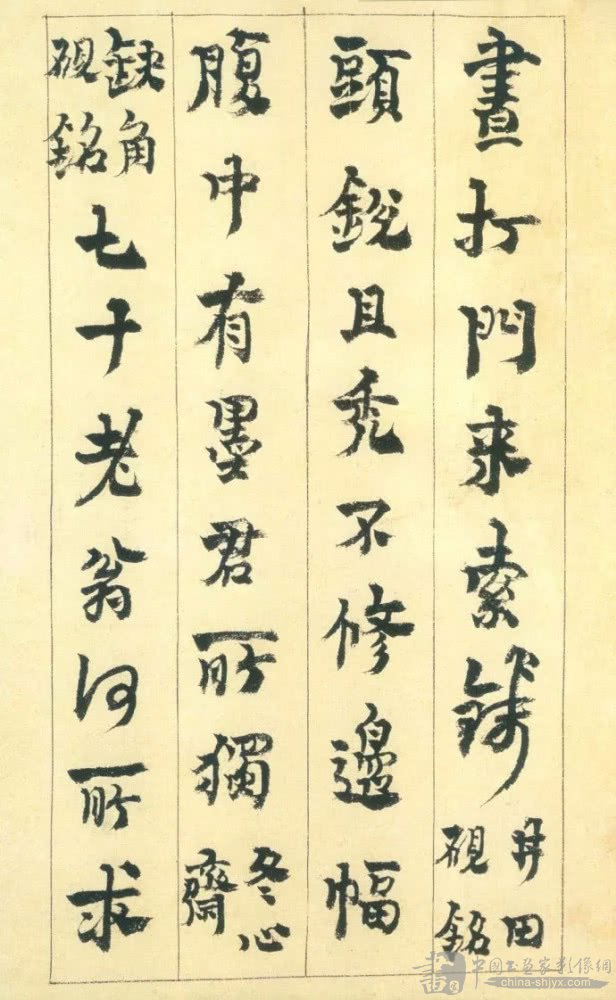 晝打門来索錢井田硯銘
頭銳且禿不修邊幅
腹中有墨君所獨冬心齋
缺角硯銘七十老翁何所求
中国书画家影像網
china-shjyx.com